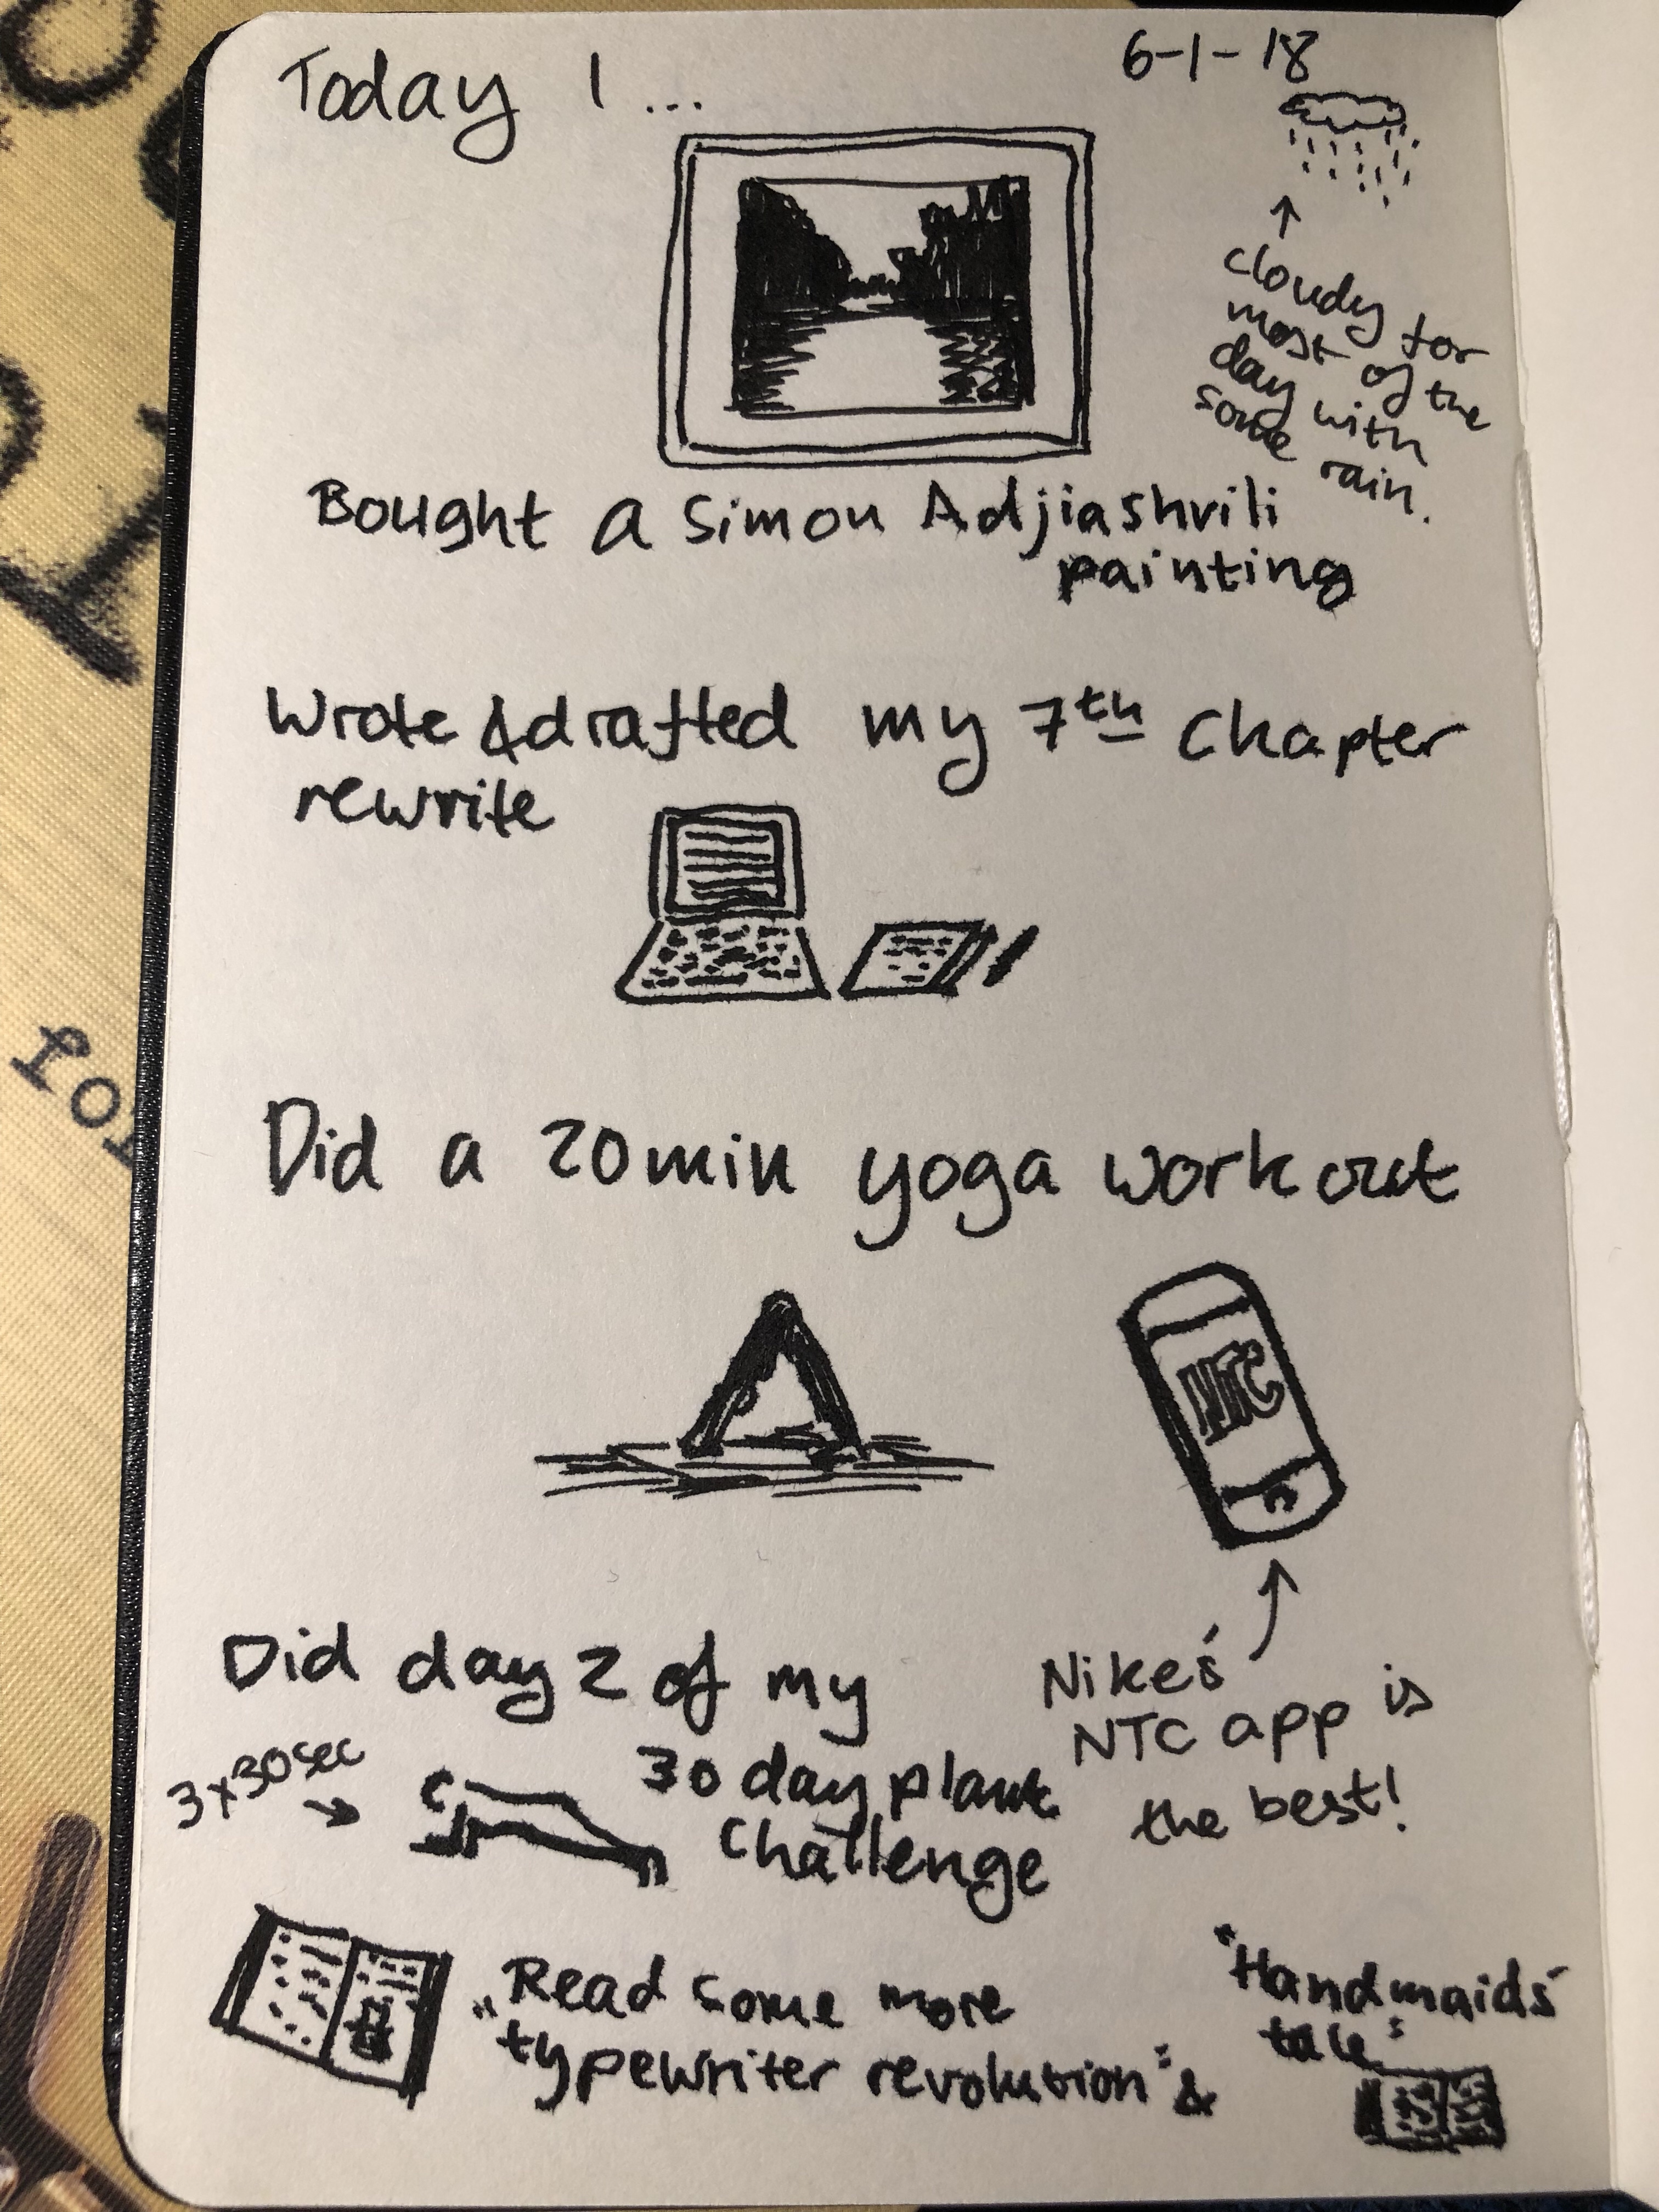 Today I...
6-1-18
cloudy for
most of the
day with
some rain.
Bought a Simon Adjiashvili
painting
Wrote & drafted my 7th chapter
rewrite
Did a 20min yoga workout
NTC
Did day 2 of my
30 day plank
challenge
3x30sec
Nike's
NTC app is
the best!
Read some more
"typewriter revolution" &
"Handmaids'
tale"
for